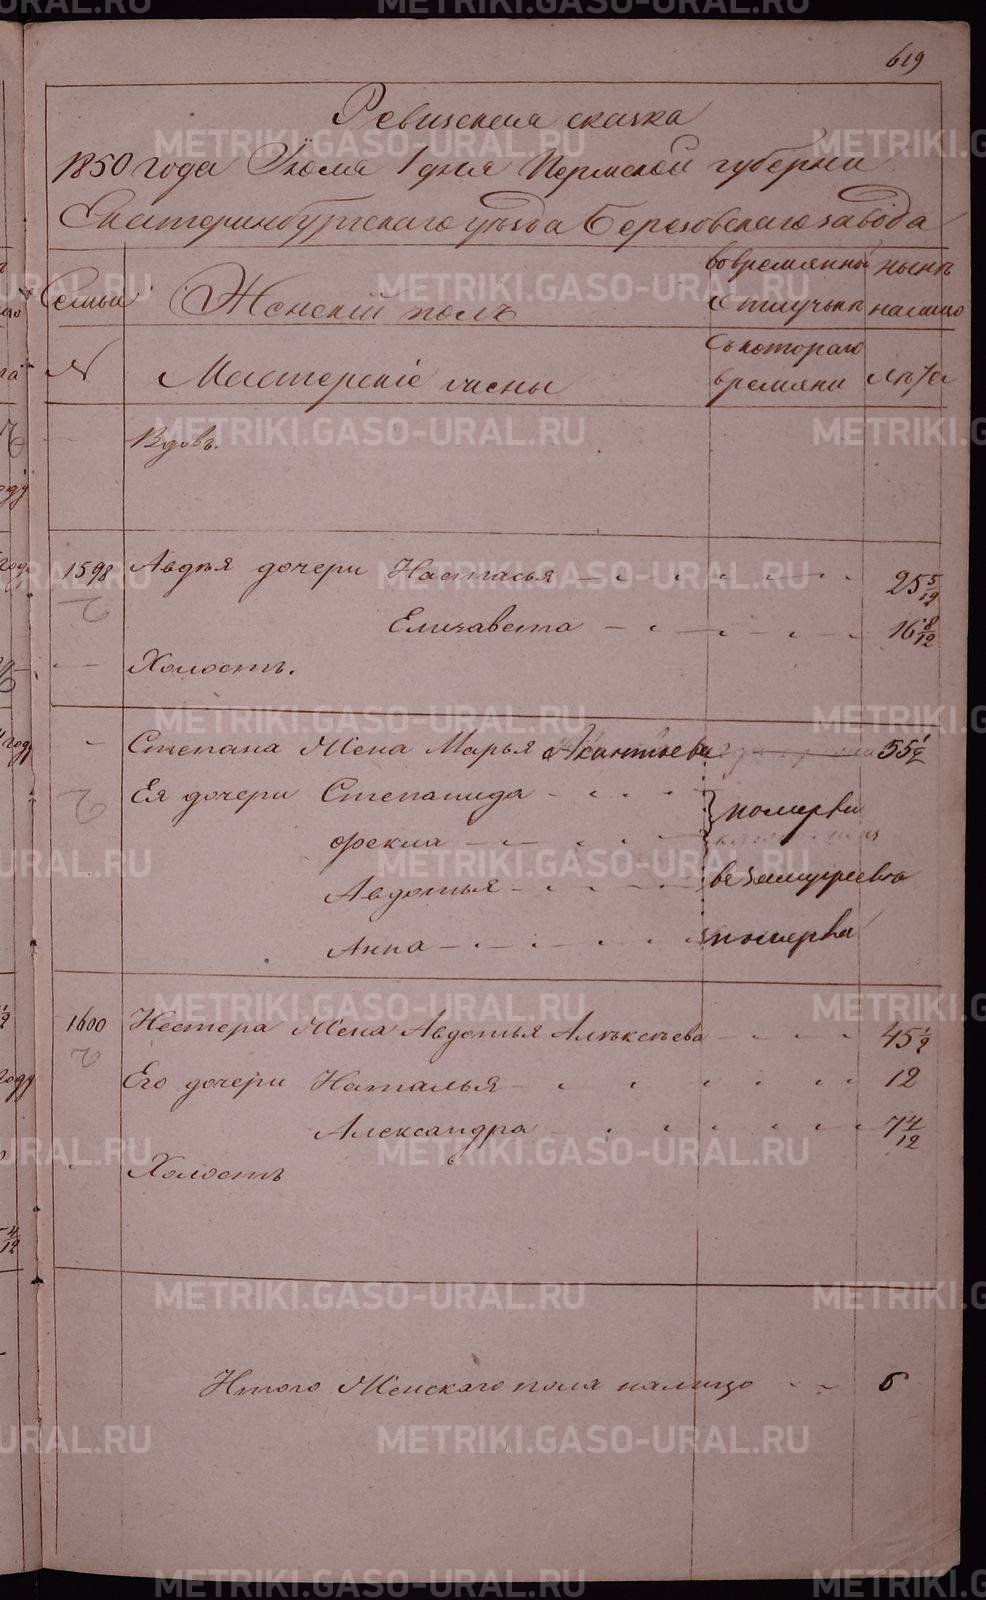 619
Ревизская сказка
1850 года Июля 1 дня Пермской губернии
Екатеринбургского уѣзда Березовского завода
Семьи Женскій полъ во времянной отлучкѣ нынѣ налицо
№ Мастерскіе жены съ котораго времяни лѣта
Вдовъ.
1598 Авдѣя дочери Настасья 25 5/12
Елизавета 16 8/12
Холостъ.
Степана Жена Марья 55 1/2
Ея дочери Степанида померли
Фекла
Авдотья в замужевствѣ
Анна померла
1600 Нестера Жена Авдотья Алѣксѣева 45 1/2
Его дочери Наталья 12
Александра 7 4/12
Холостъ
Итого Женского пола налицо 6
METRIKI.GASO-URAL.RU